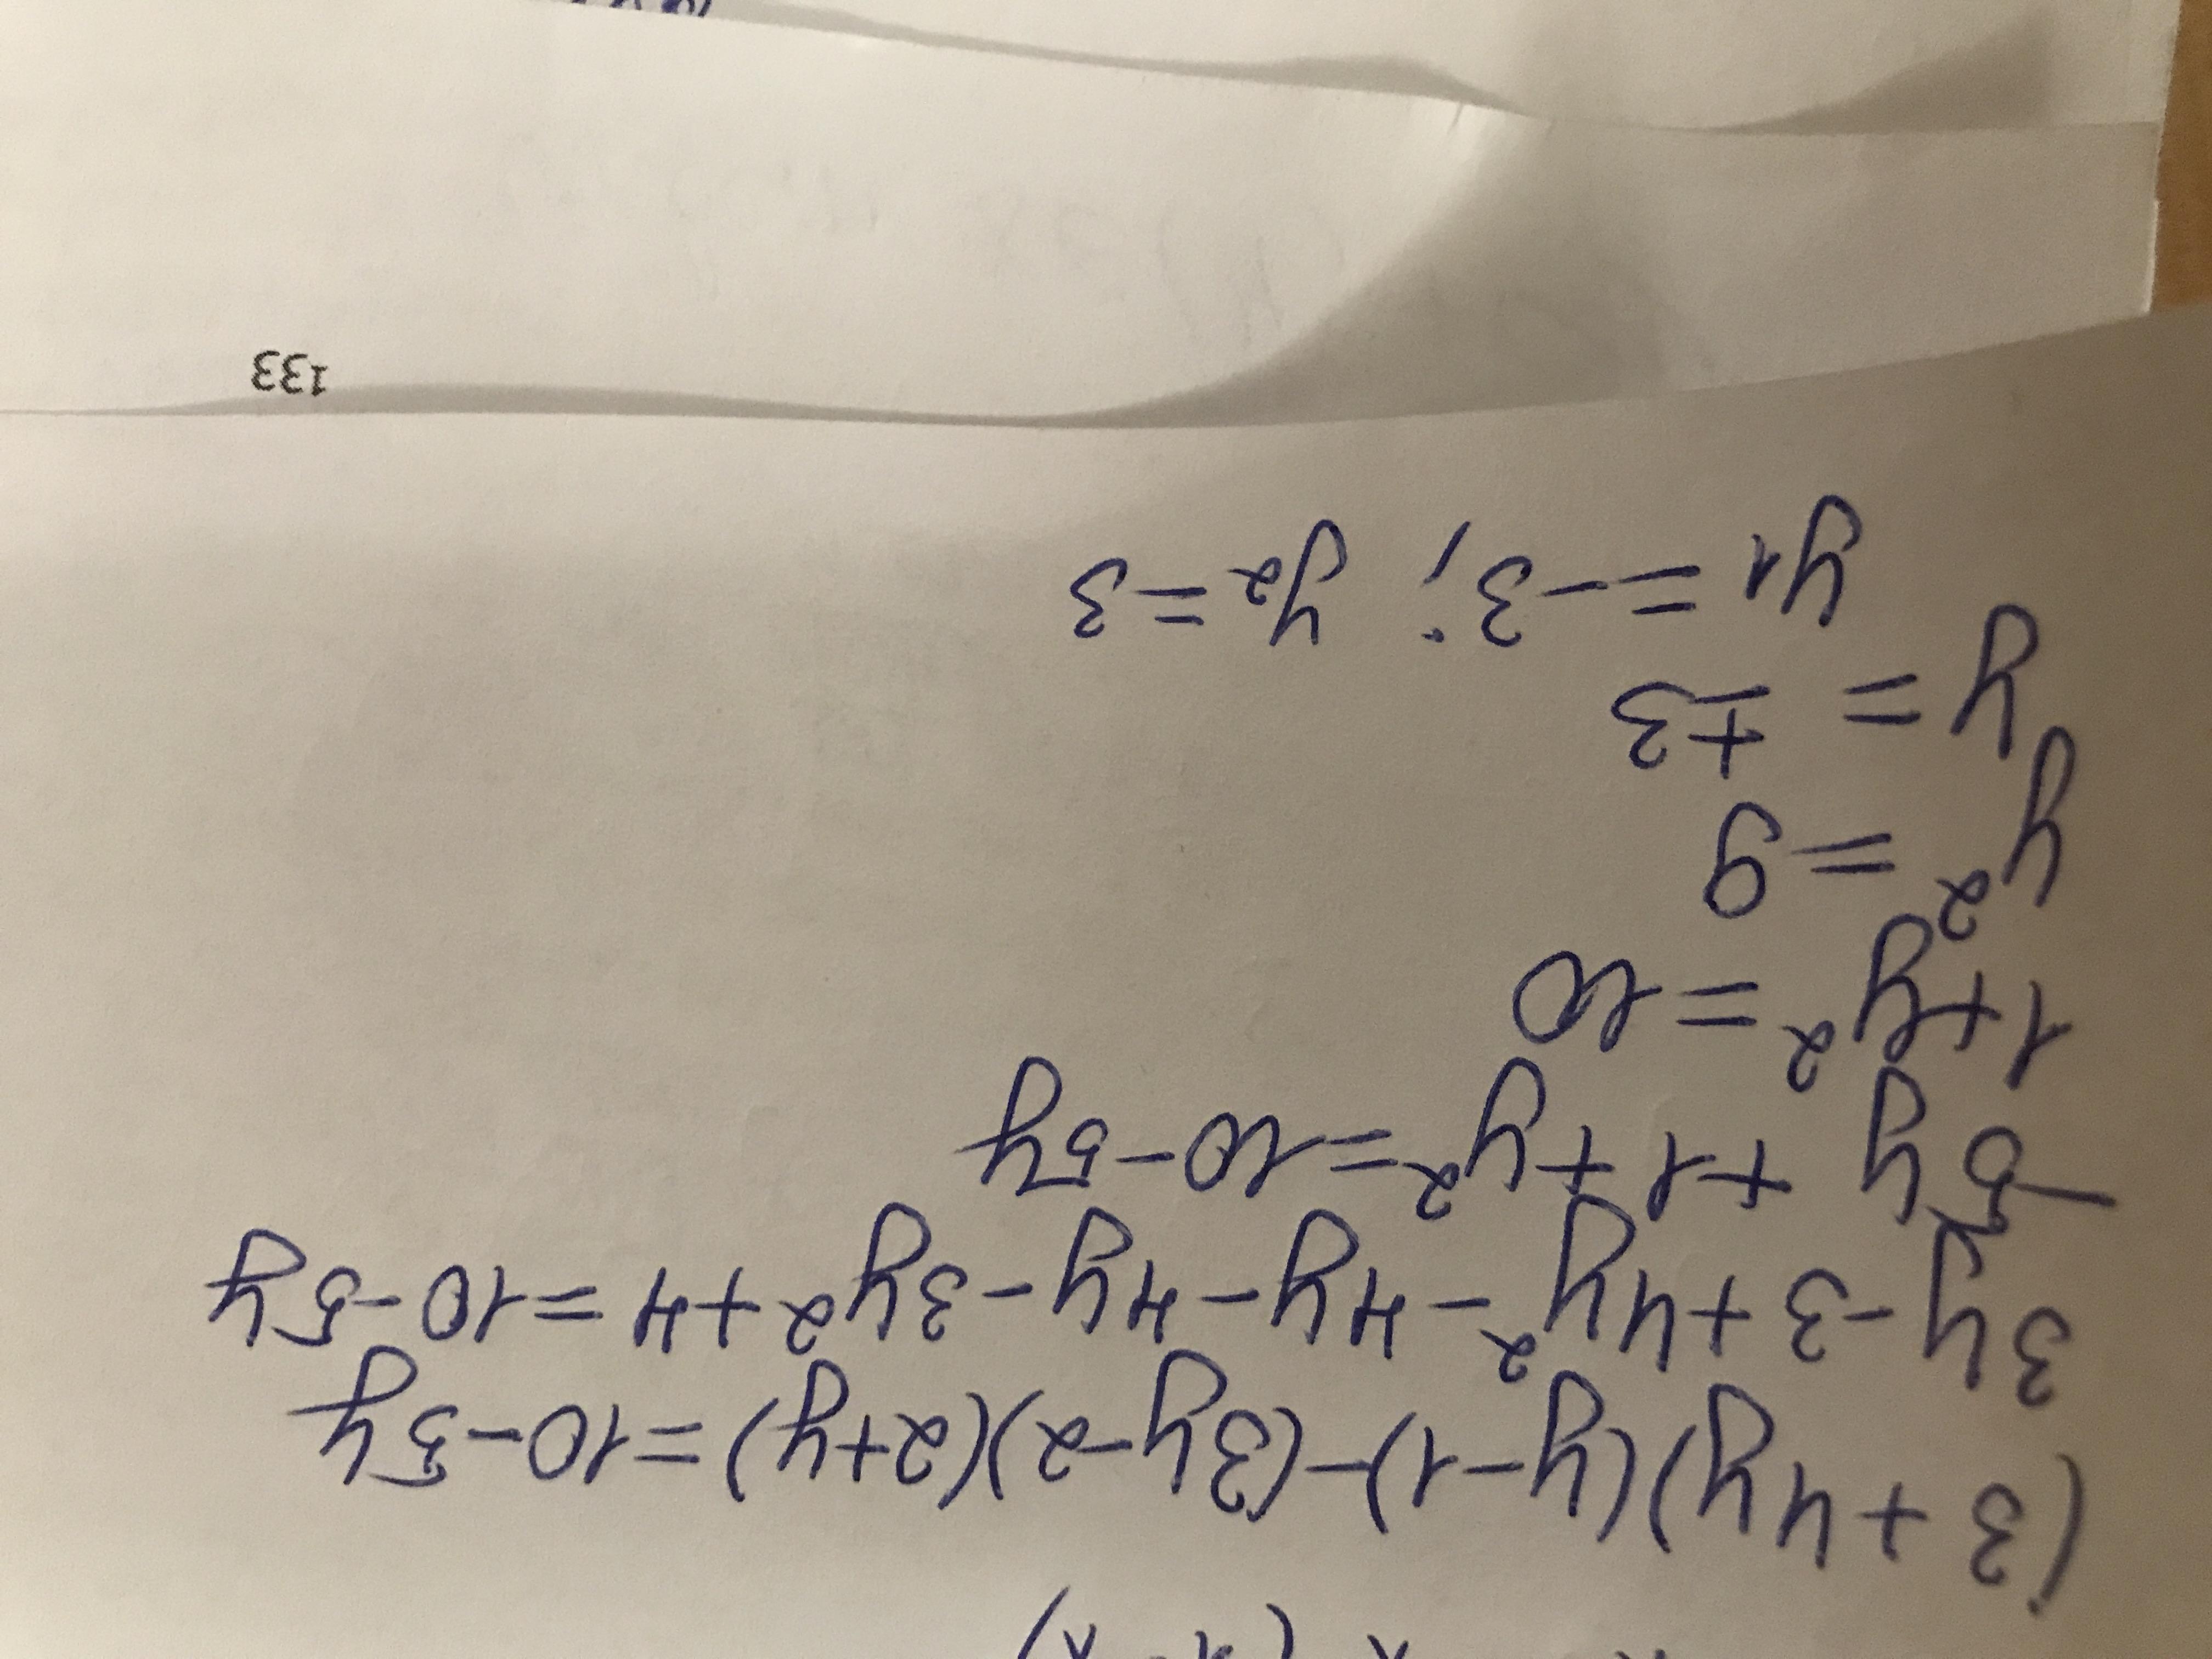 (3+4y)(y-1)-(3y-2)(2+y)=10-5y
3y-3+4y²-4y-4y-3y²+4=10-5y
-5y+1+y²=10-5y
1+y²=10
y²=9
y=±3
y₁=-3; y₂=3
133